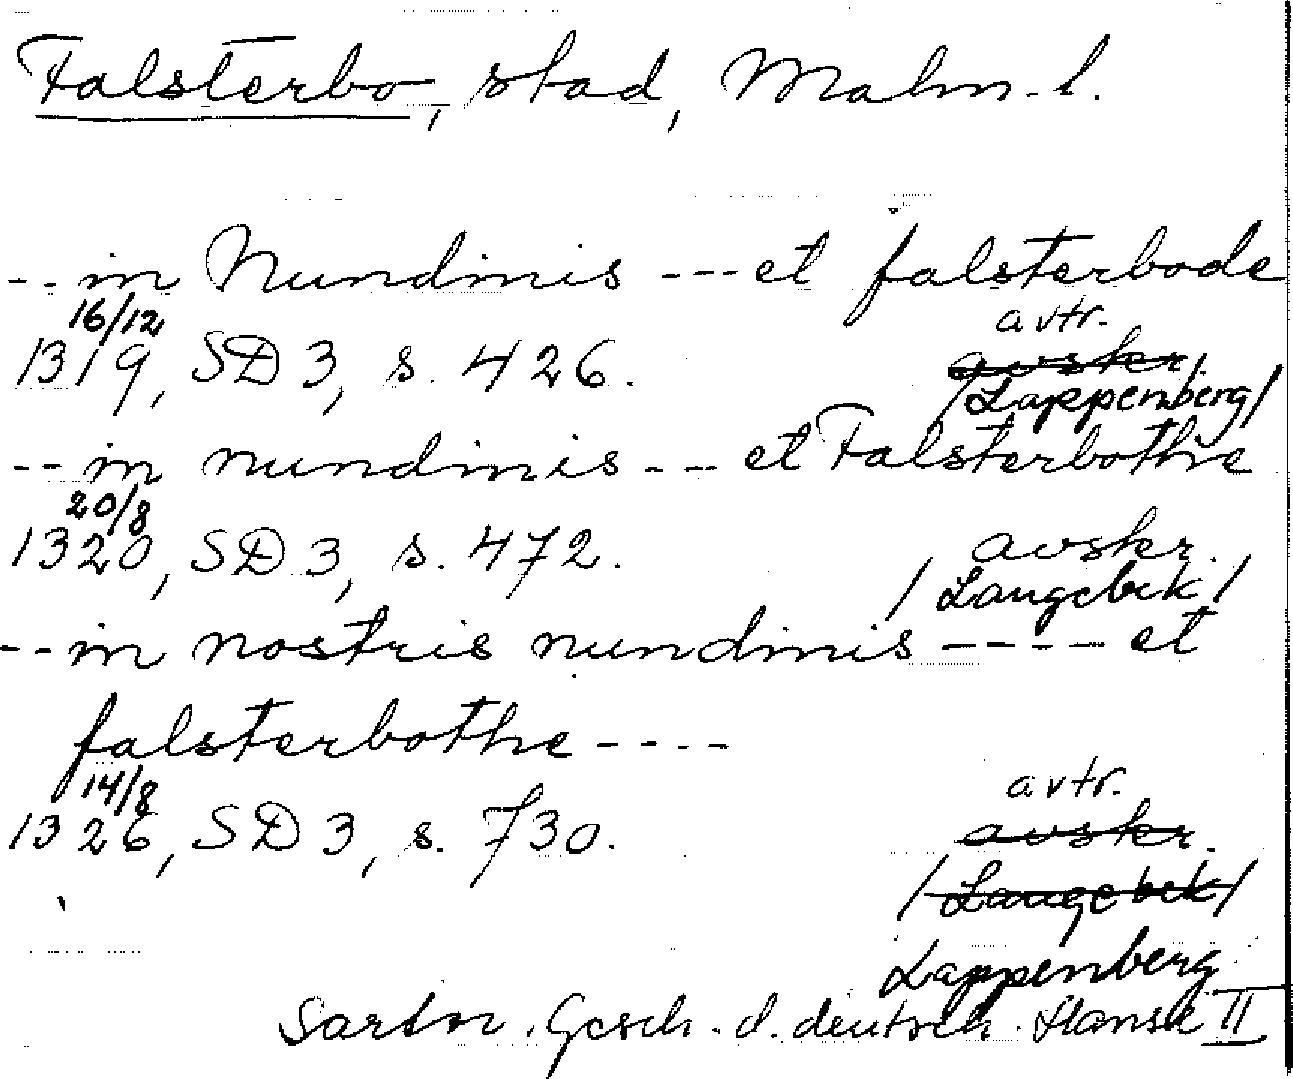 Falsterbo, stad, Malm. l.
-- in Nundinis --- et falsterbode
16/12 avtr.
1319, SD 3, s. 426. avskr.
/Lappenberg/
-- in nundinis --- et Falsterbothe
20/8
1320, SD 3, s. 472. avskr.
/Langebek/
-- in nostris nundinis ---- et
falsterbothe ----
14/8 avtr.
1326, SD 3, s. 730. avskr.
/Langebek/
Lappenberg
Gesch. d. deutsch. Hanse II